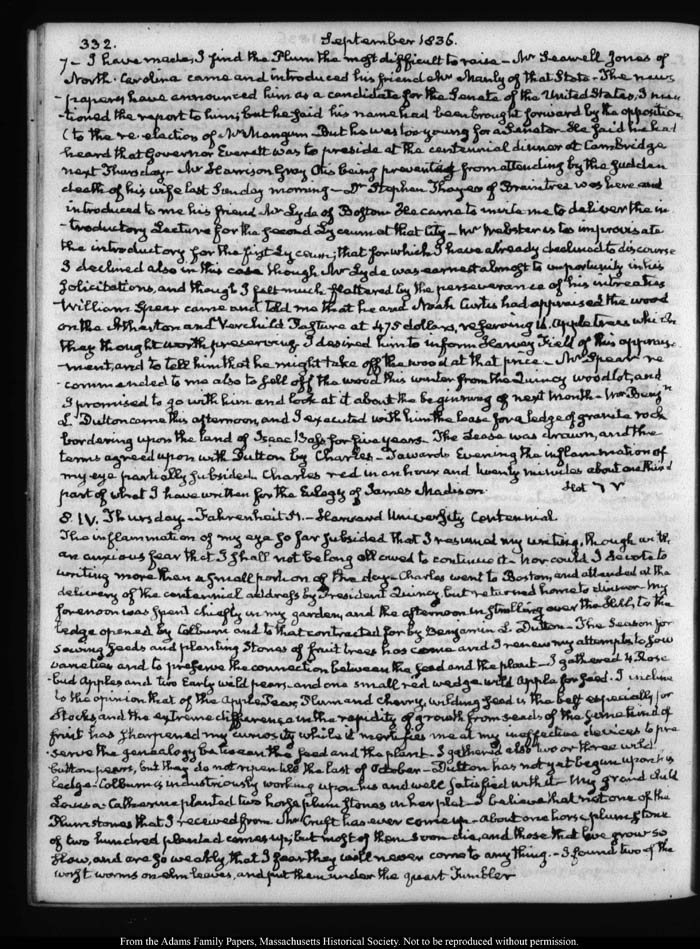 332. September 1836.
7 – I have made, I find the Plum the most difficult to raise – Mr Seawell Jones of
North Carolina came and introduced his friend Mr Manly of that State – The news
papers have announced him as a candidate for the Senate of the United States, I men
tioned the report to him; but he said his name had been brought forward by the opposition
(to the re-election of Mr Mangum – But he was too young for a Senator – He said he had
heard that Governor Everett was to preside at the centennial dinner at Cambridge
next Thursday – Mr Harrison Gray Otis being prevented from attending by the sudden
death of his wife last Sunday morning – Dr Stephen Thayer of Braintree was here and
introduced to me his friend Mr Lyde of Boston. He came to invite me to deliver the in
troductory Lecture for the second Lyceum at that City – Mr Webster is to improvisate
the introductory for the first Lyceum; that for which I have already declined to discourse
I declined also in this case though Mr Lyde was earnest almost to importunity in his
solicitations, and though I felt much flattered by the perseverance of his intreaties
William Spear came and told me that he and Noah Curtis had appraised the wood
on the Atherton and Verchild Pasture at 475 dollars, reserving 12 apple trees which
they thought worth preserving. I desired him to inform Harvey Field of this appraise
ment, and to tell him that he might take off the wood at that price – Mr Spear re
commended to me also to sell off the wood this winter from the Quincy woodlot, and
I promised to go with him and look at it about the beginning of next Month – Mr Benjn
L. Dutton came this afternoon, and I executed with him the lease for a ledge of granite rock
bordering upon the land of Isaac Bass for five years – The Lease was drawn, and the
terms agreed upon with Dutton by Charles – Towards Evening the inflammation of
my eye partially subsided. Charles red in an hour and twenty minutes about one third
part of what I have written for the Eulogy of James Madison.
8. IV. Thursday – Fahrenheit – Harvard University Centennial
The inflammation of my eye so far subsided that I resumed my writing, though with
an anxious fear that I shall not be long allowed to continue it – nor could I devote to
writing more than a small portion of the day – Charles went to Boston, and attended at the
delivery of the centennial address by President Quincy, but returned home to dinner – My
forenoon was spent chiefly in my garden, and the afternoon in strolling over the Hill, to the
ledge opened by Colburn and to that contracted for by Benjamin L. Dutton – The Season for
sowing seeds and planting Stones of fruit trees has come and I renew my attempts to sow
varieties and to preserve the connection between the seed and the plant – I gathered 4 Rose
bud Apples and two Early wild pears, and one small red wedge wild Apple for seed. I incline
to the opinion that of the Apple Pear, Plum and Cherry, wilding seed is the best especially for
Stocks, and the extreme difference in the rapidity of growth from seeds of the same kind of
fruit has sharpened my curiosity while it mortifies me at my ineffective devices to pre
serve the genealogy between the seed and the plant – I gathered also two or three wild
button pears, but they do not ripen till the last of October – Dutton has not yet begun upon his
ledge – Colburn is industriously working upon his and well satisfied with it – My grand child
Louisa Catherine planted two horse plum stones in her plat – I believe that not one of the
Plum stones that I received from Mr Cruft has ever come up – about one horse plum stone
of two hundred planted comes up; but most of them soon die, and those that live grow so
slow, and are so weakly, that I fear they will never come to any thing. – I found two of the
worst worms on elm leaves, and put them under the quart Tumbler
From the Adams Family Papers, Massachusetts Historical Society. Not to be reproduced without permission.